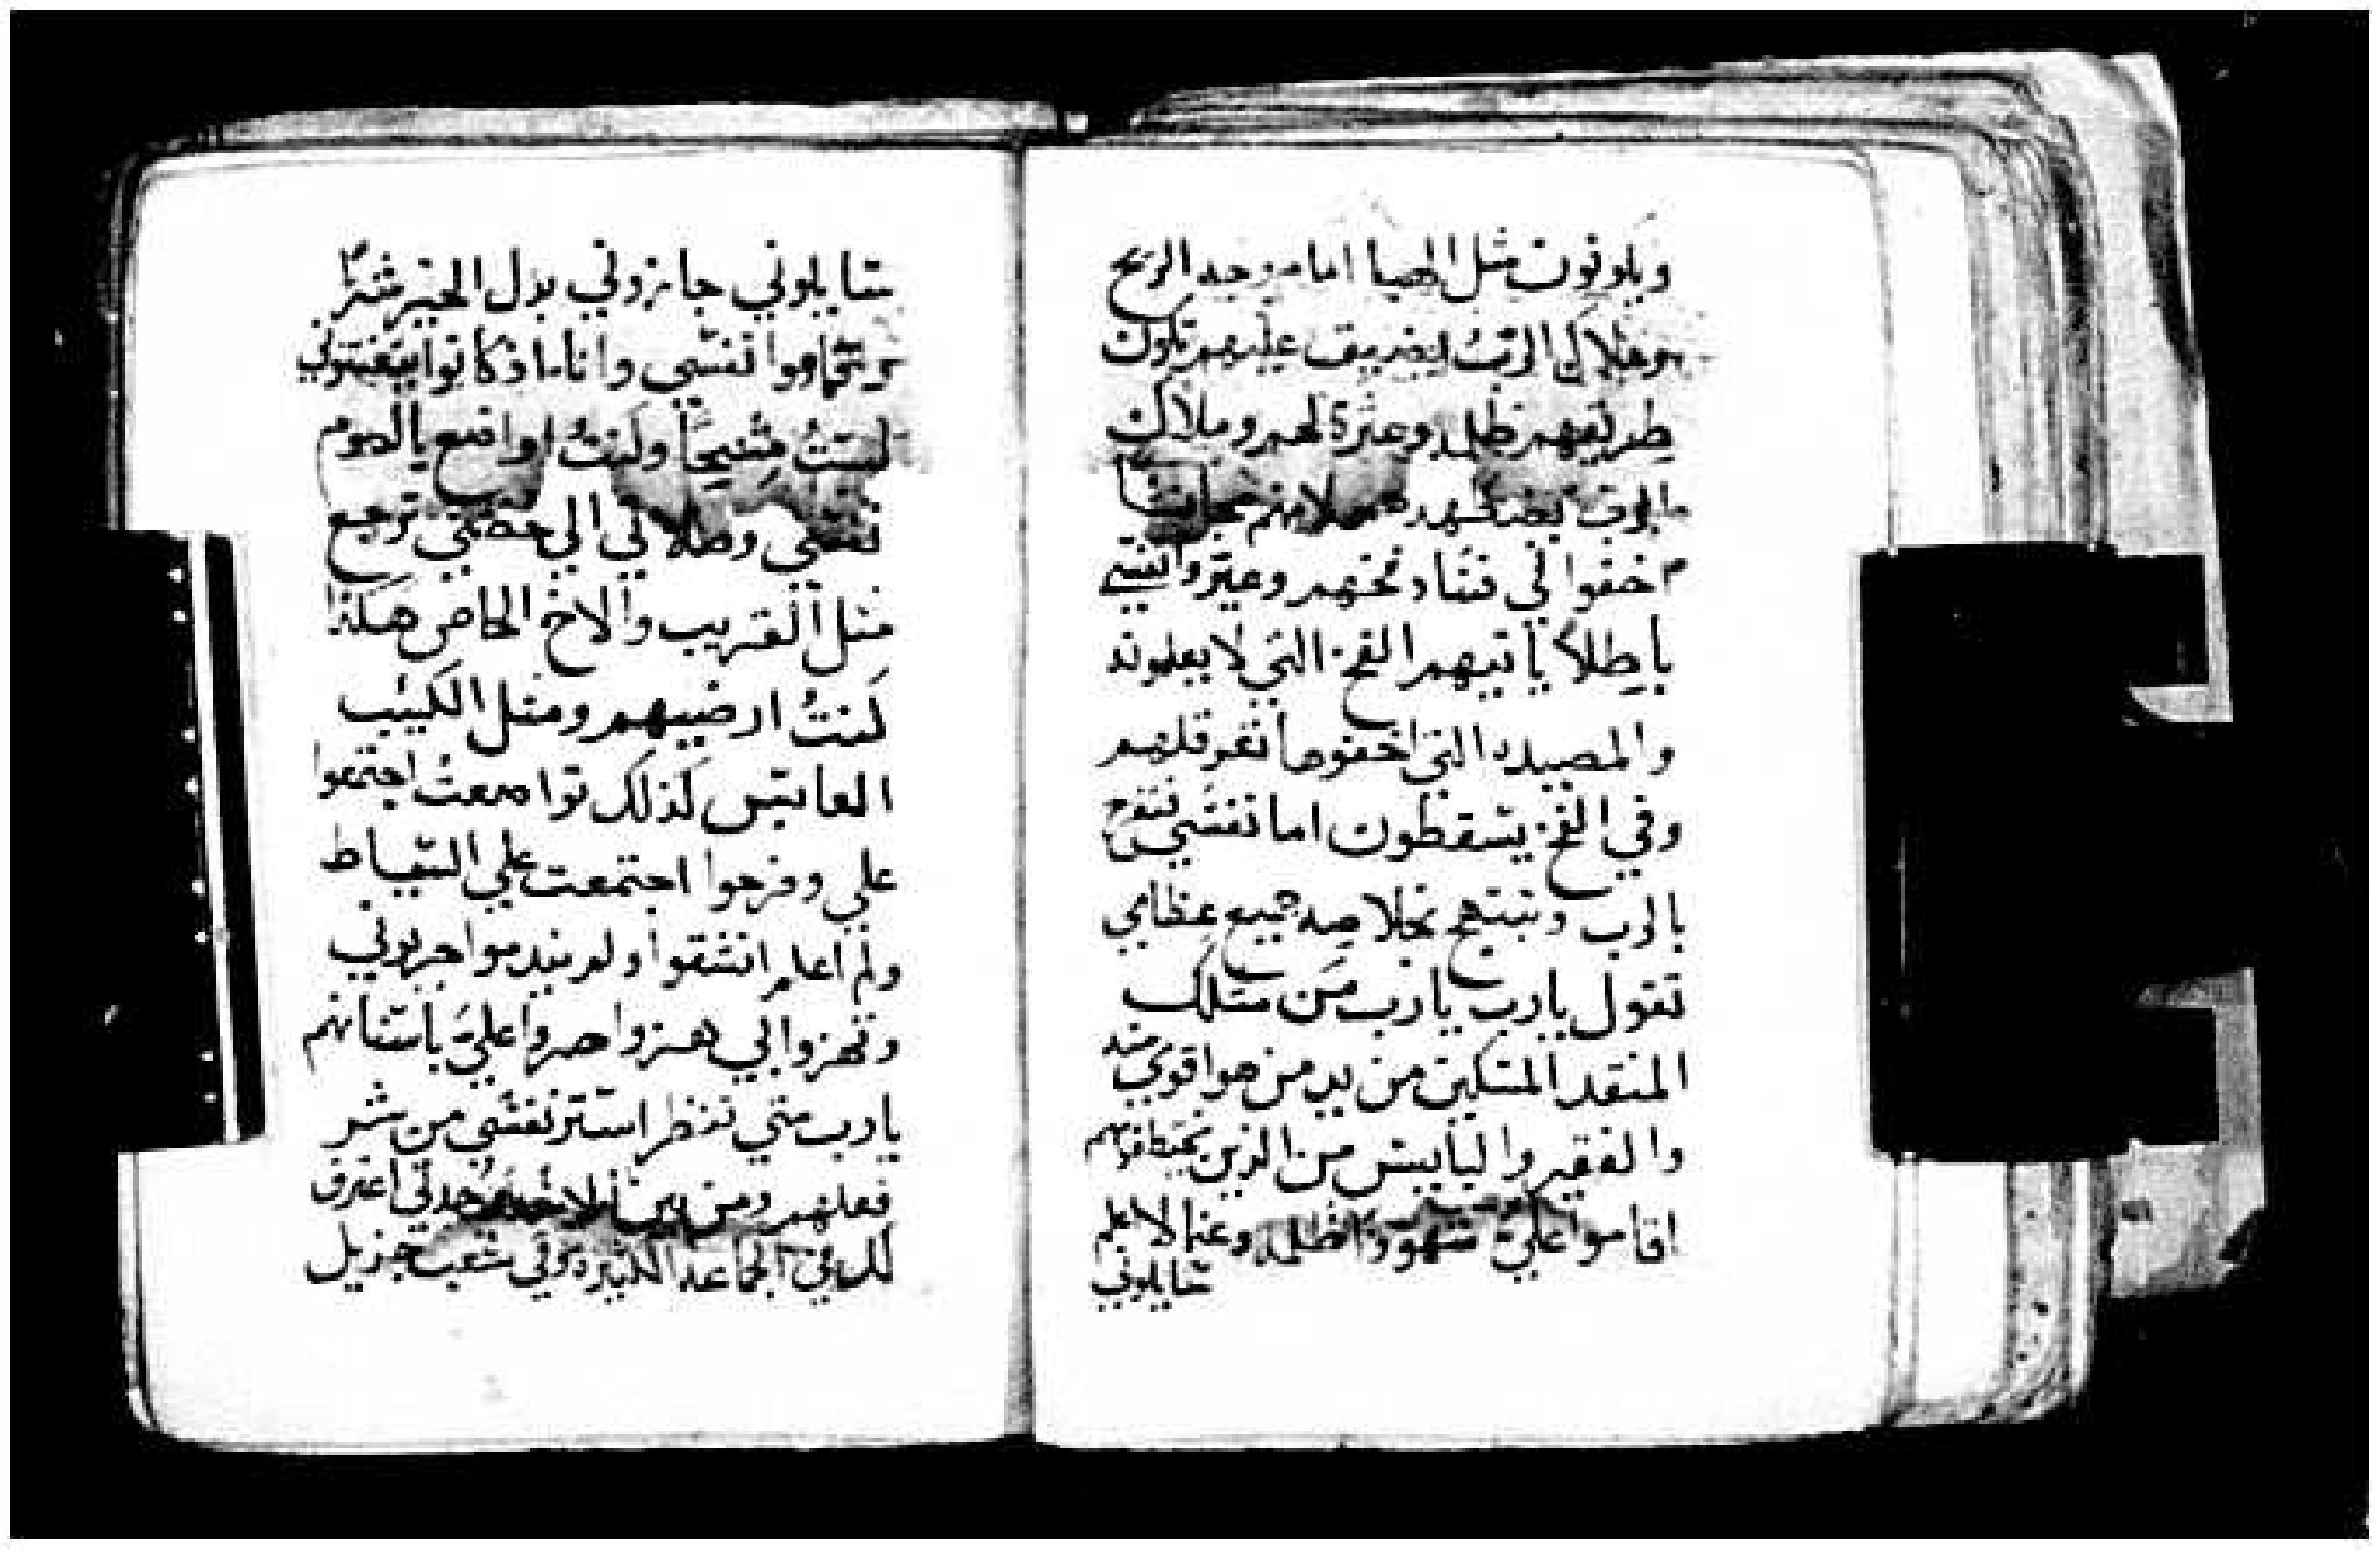 ويكونون مثل الهبا امام وجه الريح
وملاك الرب يضيق عليهم تكون
طريقهم ظلمه وعثرة لهم وملاك
الرب يضطهدهم لانهم مجانا
اخفوا لي فساد فخهم وعيروا نفسي
باطلاً ياتيهم الفخ التي لا يعلمونه
والمصيده التي اخفوها تعرقلهم
وفي الفخ يسقطون اما نفسي تفرح
بالرب وتبتهج بخلاصه جميع عظامي
تقول يارب يارب من مثلك
المنقد المسكين من يد من هو اقوي منه
والفقير واليايس من الذين يختطفونهم
اقاموا علي شهود الظلمه وعما لا اعلم
سايلوني
سايلوني جازوني بدل الخير شراً
نفسي وانا اذ كانوا يتعنتوني
لبست مسحاً وكنت اواضع بالصوم
نفسي وصلاتي الي حضني ترجع
مثل القريب والاخ الخاص هكذا
كنتُ ارضيهم ومثل الكييب
العابس كذلك تواضعتُ اجتمعوا
علي وفرحوا اجتمعت علي السياط
ولم اعلم انشقوا ولم يندموا جربوني
وتهزوا بي هزوا صروا عليَّ باسنانهم
يارب متي تنظر استر نفسي من شر
فعلهم ومن بين الاسد وحدتي اعترف
لك في الجماعه الكثيره وفي شعب جزيل